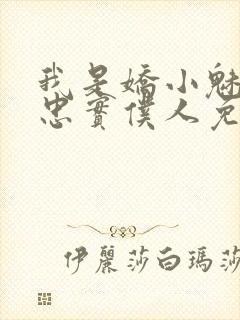 我是嬌小魅
忠實僕人兔
伊麗莎白瑪莎